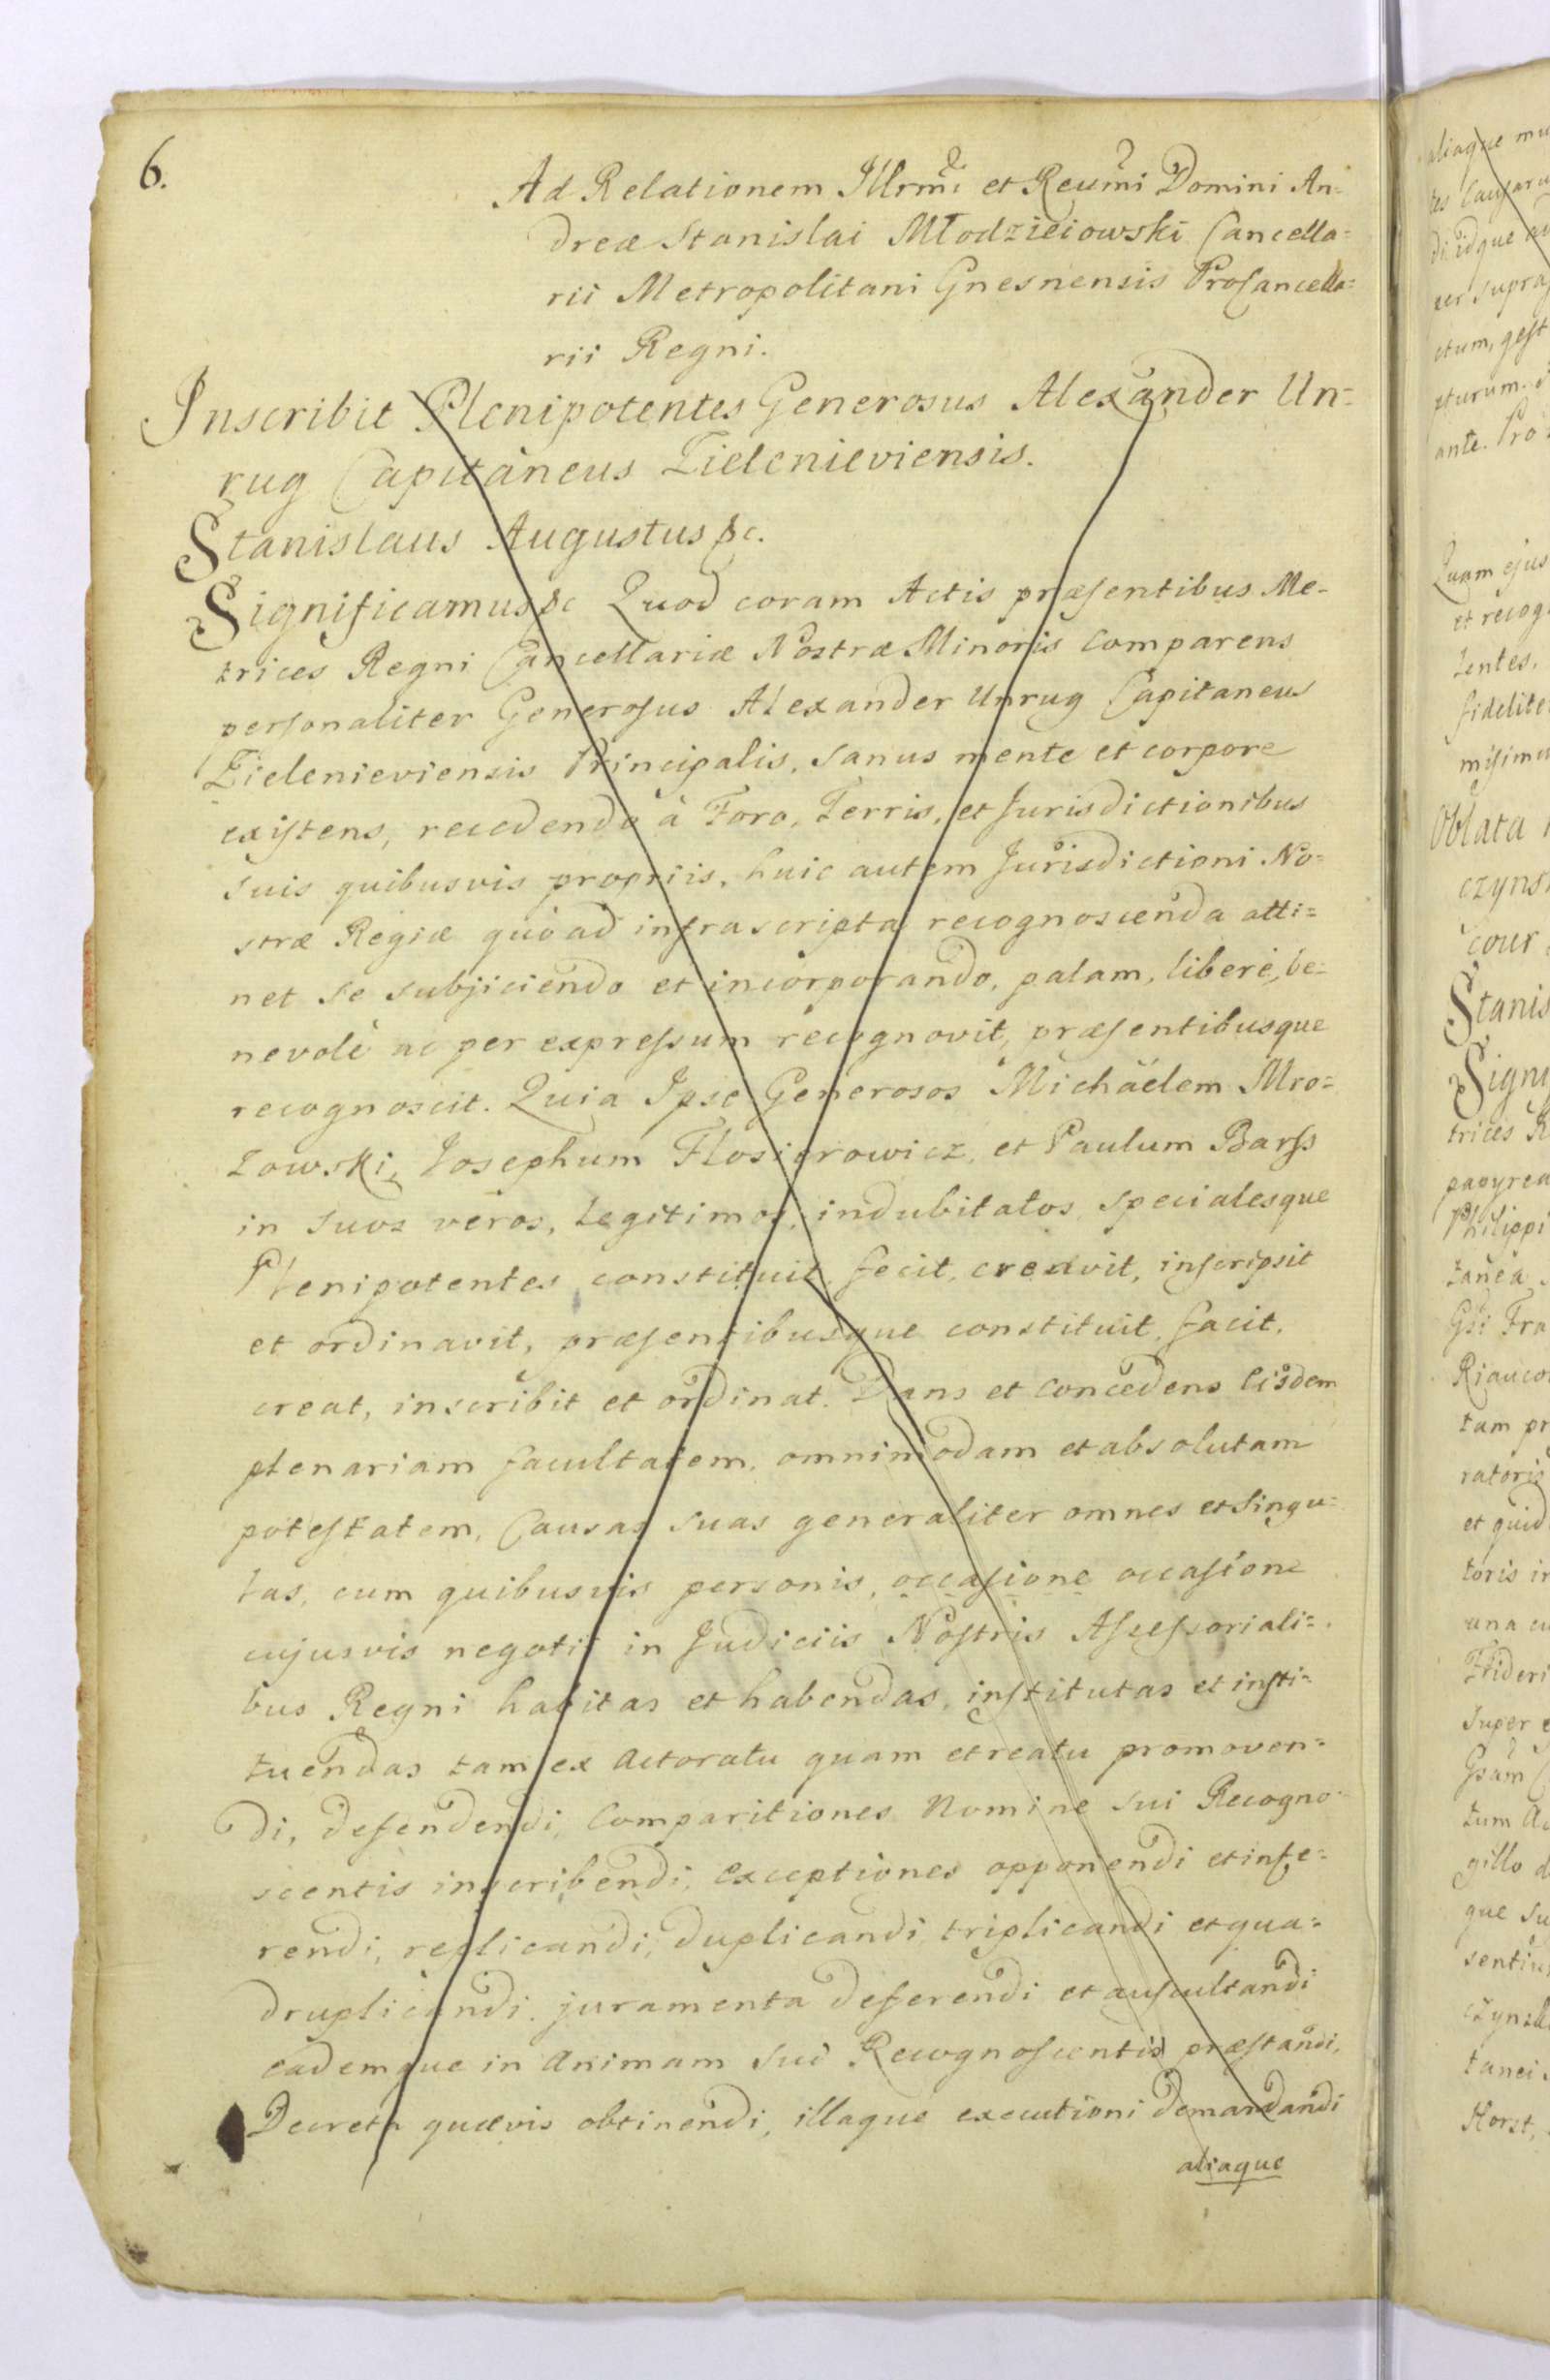 6.
Ad Relationem Illrmi et Reumi Domini An=
dreæ Stanislai Młodzieiowski Cancella=
rii Metropolitani Gnesnensis ProCancella=
rii Regni.
Inscribit Plenipotentes Generosus Alexander Un=
rug Capitaneus Zielenieviensis.
Stanislaus Augustus &c.
Significamus &c Quod coram Actis præsentibus Me-
trices Regni Cancellariæ Nostræ Minoris Comparens
personaliter Generosus Alexander Unrug Capitaneus
Zielenieviensis Principalis, sanus mente et corpore
existens, recedendo à Foro, Terris, et Jurisdictionibus
suis quibusvis propriis, huic autem Jurisdictioni No=
stræ Regiæ quòad infrascripta recognoscenda atti=
net se subjiciendo et incorporando, palam, liberè, be=
nevolè ac per expressum recognovit, præsentibusque
recognoscit. Quia Ipse Generosos Michäelem Mro=
zowski, Josephum Flosierowicz, et Paulum Barss
in suos veros, legitimos, indubitatos, specialesque
Plenipotentes constituit, fecit, creavit, inscripsit
et ordinavit, præsentibusque constituit, facit,
creat, inscribit et ordinat. Dans et concedens Eisdem
plenariam facultatem, omnimodam et absolutam
potestatem, Causas suas generaliter omnes et singu=
las, cum quibusvis personis, occasione occasione
cujusvis negotii in Judiciis Nostris Assessoriali=
bus Regni habitas et habendas, institutas et insti=
tuendas tam ex Actoratu quam et reatu promoven=
di, defendendi, Comparitiones Nomine sui Recogno=
scentis inscribendi, exceptiones opponendi et infe=
rendi, replicandi, duplicandi, triplicandi et qua=
druplicandi, juramenta deferendi et auscultandi
eademque in Animam sui Recognoscentis præstandi,
Decreta quævis obtinendi, illaque executioni demandandi
aliaque
aliaque mu
di idque
ser supra
ctum, gest
pturum.
ante. Pro
Quam ejus
et recog
tentes,
fidelite
misimu
Oblata
czyns
cour
Stanis
Signi
trices R
papyrea
Philippi
tanea
Gsi Fra
Riaucou
tam pr
ratoris
et quid
toris in
una cu
Frideri
super e
Gsam
tum Ac
gillo d
que su
sentiu
czynsk
tanei
Horst,